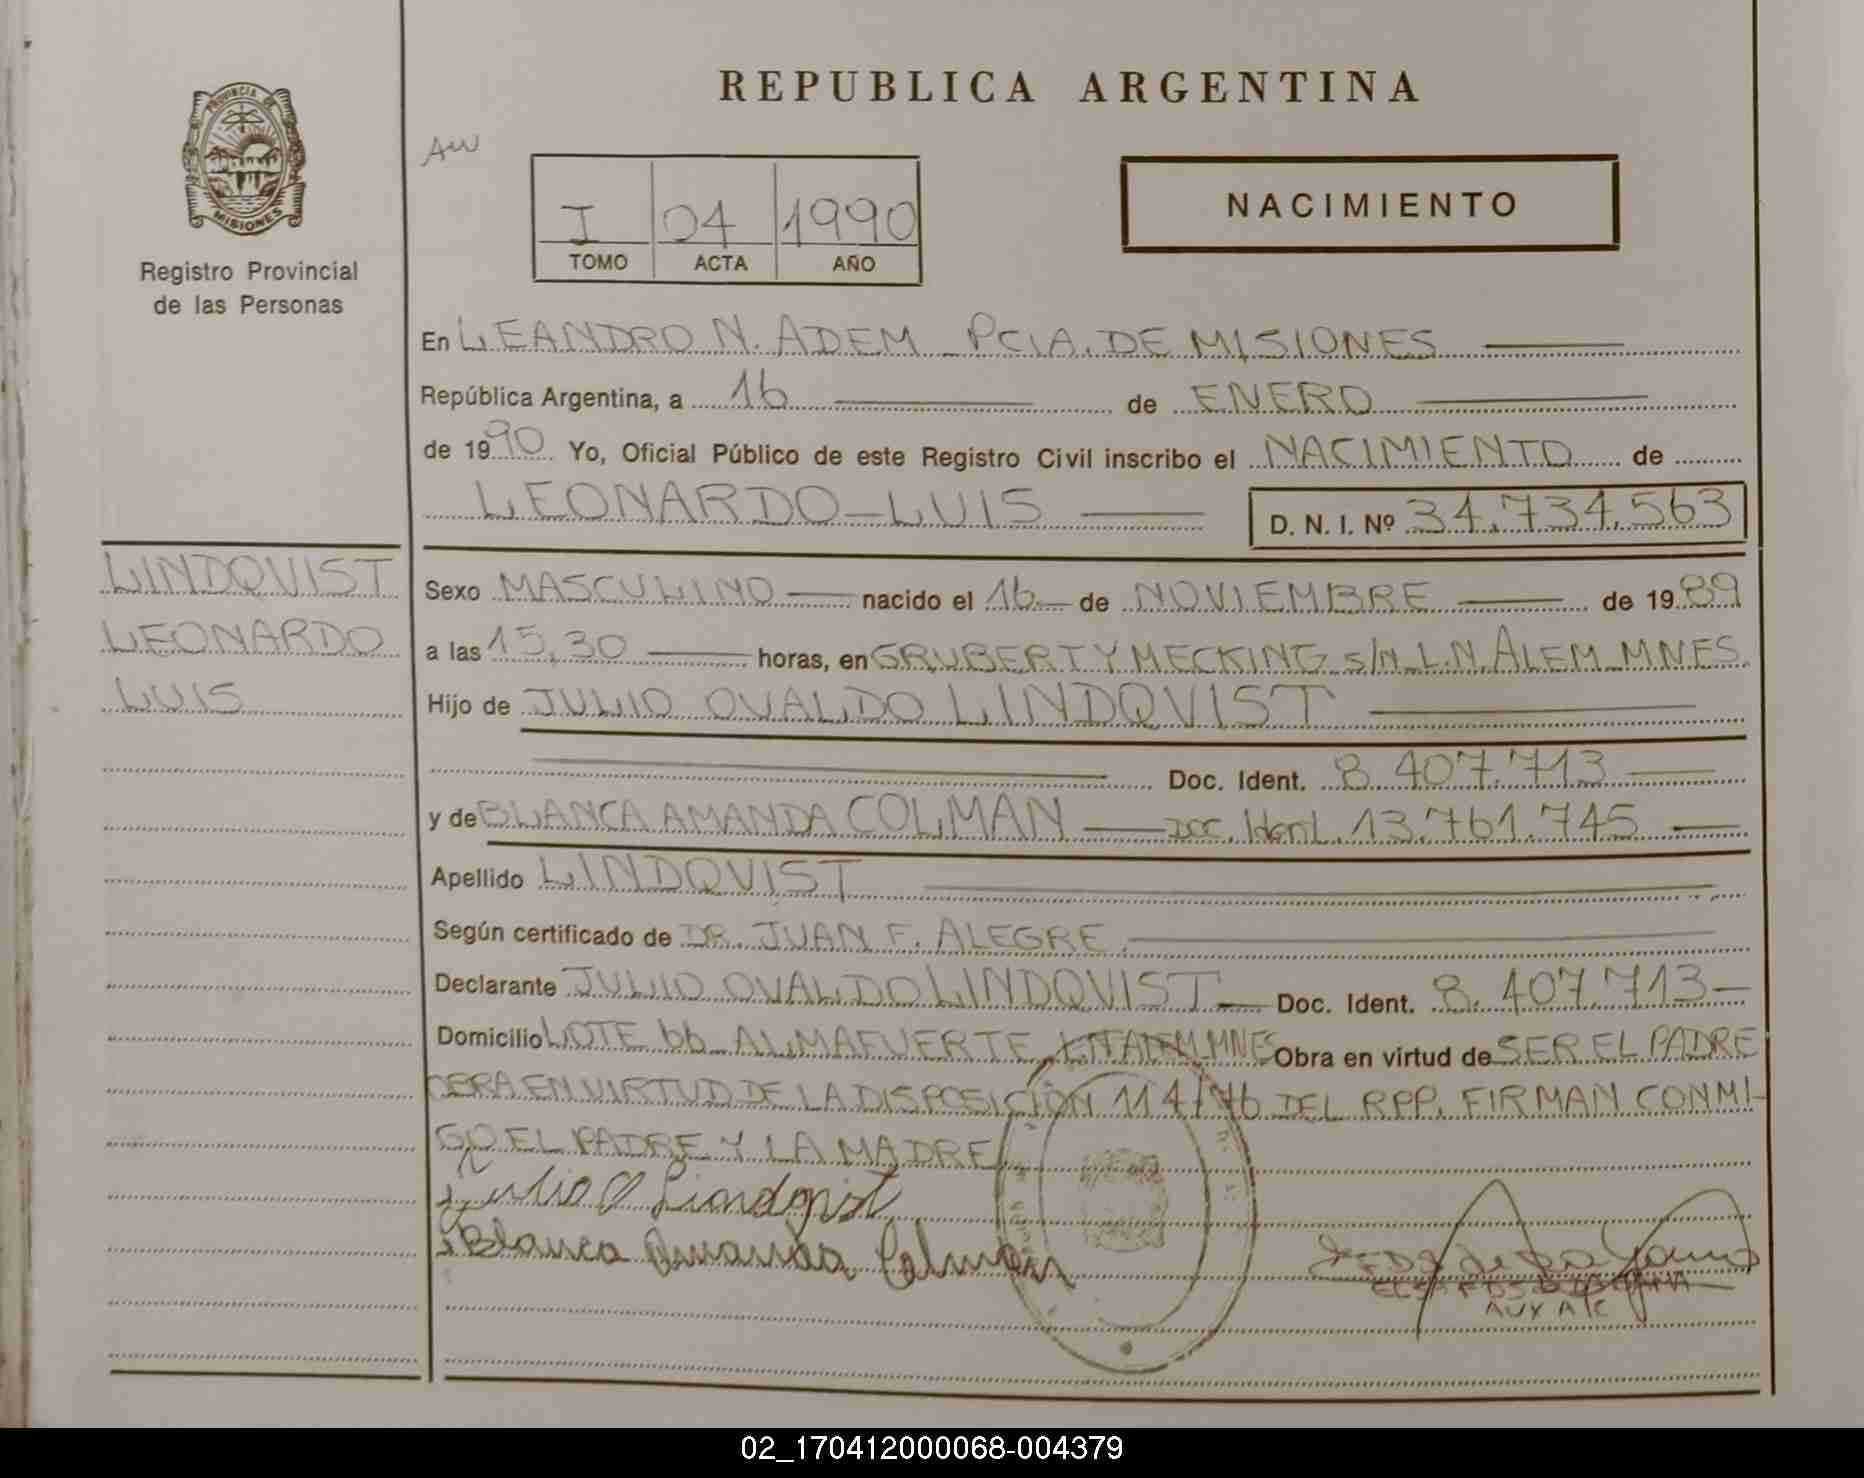 REPUBLICA ARGENTINA
PROVINCIA DE
MISIONES
Registro Provincial
de las Personas
AW
I 04 1990
TOMO ACTA AÑO
NACIMIENTO
En LEANDRO N. ADEM PCIA. DE MISIONES
República Argentina, a 16 de ENERO
de 1990 Yo, Oficial Público de este Registro Civil inscribo el NACIMIENTO de
LEONARDO-LUIS D. N. I. Nº 34.734.563
LINDQVIST
LEONARDO
LUIS
Sexo MASCULINO nacido el 16 de NOVIEMBRE de 1989
a las 15,30 horas, en GRUBERT Y MECKING s/n L.N. ALEM MNES.
Hijo de JULIO OVALDO LINDQVIST
Doc. Ident. 8.407.713
y de BLANCA AMANDA COLMAN Doc. Ident. 13.761.745
Apellido LINDQVIST
Según certificado de DR. JUAN F. ALEGRE
Declarante JULIO OVALDO LINDQVIST Doc. Ident. 8.407.713
Domicilio LOTE 66 ALMAFUERTE MNES Obra en virtud de SER EL PADRE
OBRA EN VIRTUD DE LA DISPOSICION 114/76 DEL RPP. FIRMAN CONMI-
GO EL PADRE Y LA MADRE
Julio O Lindqvist
Blanca Amanda Colman
AUX A/C
02_170412000068-004379